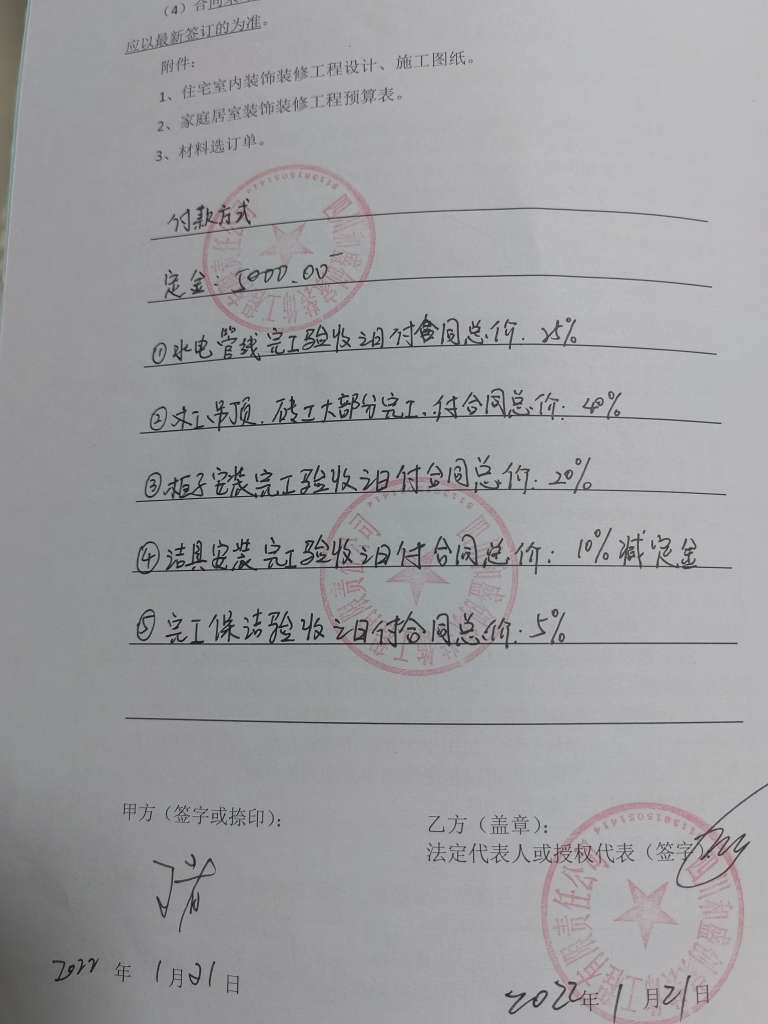 （4）合同
应以最新签订的为准。
附件：
1、住宅室内装饰装修工程设计、施工图纸。
2、家庭居室装饰装修工程预算表。
3、材料选订单。
付款方式
定金：5000.00
①水电管线完工验收之日付合同总价：25%
②木工吊顶、砖工大部分完工、付合同总价：40%
③柜子安装完工验收之日付合同总价：20%
④洁具安装完工验收之日付合同总价：10%减定金
⑤完工保洁验收之日付合同总价：5%
甲方（签字或捺印）：
乙方（盖章）：
法定代表人或授权代表（签字
2022年1月21日
2022年1月21日